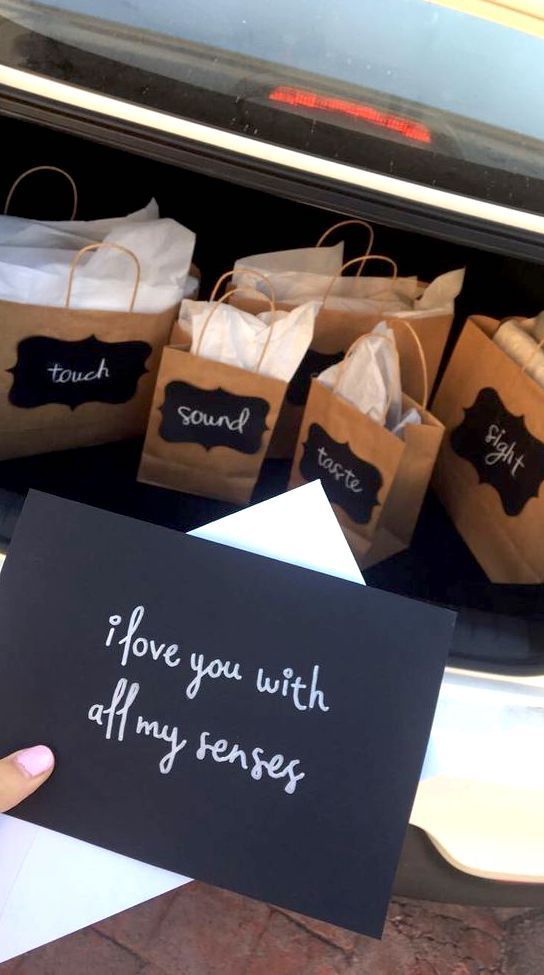 touch
sound
taste
sight
i love you with
all my senses